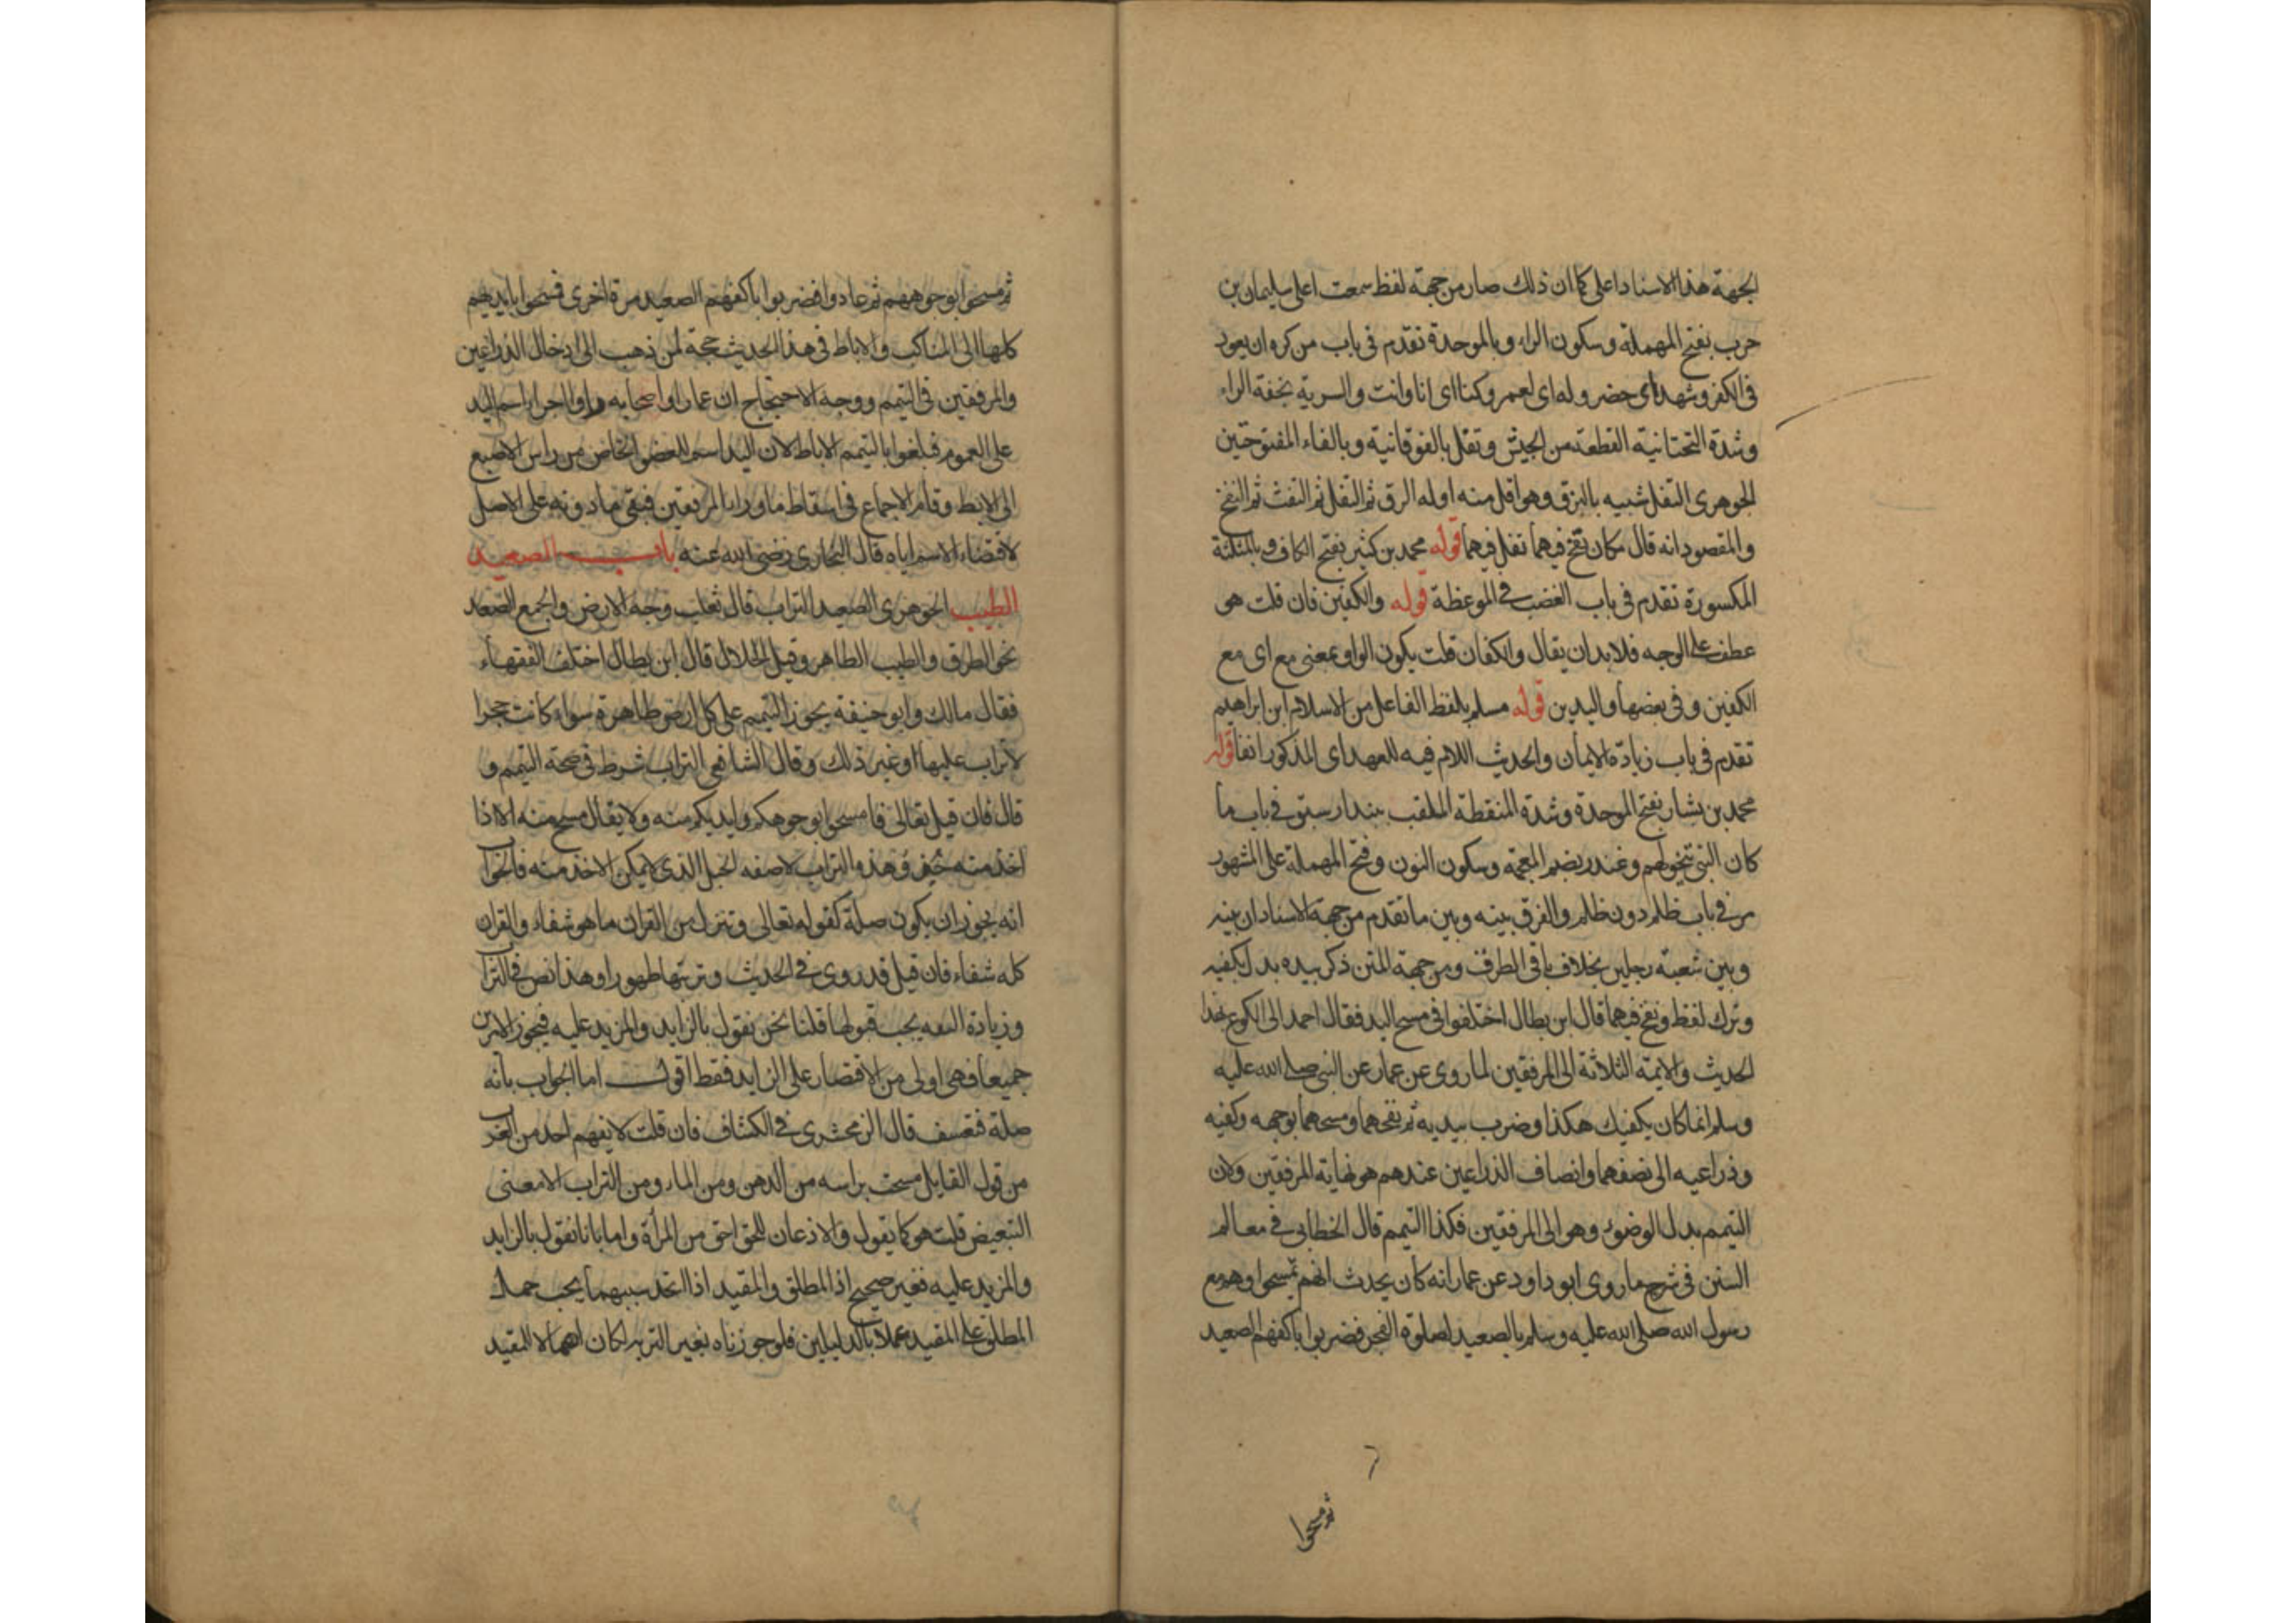 الجهة هذا الاسناد اعلى كما ان ذلك صار من جهة لفظ سمعت اعلى سليمان بن
حرب بفتح المهملة وسكون الراء وبالموحدة تقدم فى باب من كره ان يعود
فى الكفر وشهد اى حضر وله اى لعمر وكنا اى انا وانت والسرية بخفة الراء
وشدة التحتانية القطعة من الجيش وتفل بالفوقانية وبالفاء المفتوحتين
الجوهرى التفل شبيه بالبزق وهو اقل منه اوله البزق ثم التفل ثم النفث ثم النفخ
والمقصود انه قال مكان نفخ فيهما تفل فيهما قوله محمد بن كثير بفتح الكاف وبالمثلثة
المكسورة تقدم فى باب الغضب فى الموعظة قوله والكفين فان قلت هى
عطف على الوجه فلا بد ان يقال والكفان قلت يكون الواو بمعنى مع اى مع
الكفين وفى بعضها واليدين قوله مسلم بلفظ الفاعل من الاسلام ابن ابراهيم
تقدم فى باب زيادة الايمان والحديث اللام فيه للعهد اى المذكور انفا قوله
محمد بن بشار بفتح الموحدة وشدة المنقطة الملقب ببندار سبق فى باب ما
كان النبى يتخولهم وغندر بضم المعجمة وسكون النون وفتح المهملة على المشهور
مر فى باب ظلم دون ظلم والفرق بينه وبين ما تقدم من جهة الاسناد ان بينه
وبين شعبة رجلين بخلاف باقى الطرق ومن جهة المتن ذكر بيده بدل بكفيه
وترك لفظ ونفخ فيهما قال ابن بطال اختلفوا فى مسح اليد فقال احمد الى الكوع لهذا
الحديث والايمة الثلاثة الى المرفقين لما روى عن عمار عن النبى صلى الله عليه
وسلم انما كان يكفيك هكذا وضرب بيديه ثم نفخهما ومسحهما بوجهه وكفيه
وذراعيه الى نصفهما وانصاف الذراعين عندهم هو نهاية المرفقين ولان
التيمم بدل الوضوء وهو الى المرفقين فكذا التيمم قال الخطابى فى معالم
السنن فى شرح ما روى ابو داود عن عمار انه كان يحدث انهم تمسحوا وهم مع
رسول الله صلى الله عليه وسلم بالصعيد لصلوة الفجر فضربوا باكفهم الصعيد
ثم مسحوا
ثم مسحوا بوجوههم ثم عادوا فضربوا باكفهم الصعيد مرة اخرى فمسحوا بايديهم
كلها الى المناكب والاباط فى هذا الحديث حجة لمن ذهب الى ادخال الذراعين
والمرفقين فى التيمم ووجه الاحتجاج ان عمارا واصحابه راوا اجراء اسم اليد
على العموم فبلغوا بالتيمم الاباط لان اليد اسم للعضو الخاص من راس الاصبع
الى الابط وقام الاجماع فى اسقاط ما وراء المرفقين فبقى ما دونه على الاصل
لاقتضاء الاسم اياه قال البخارى رضى الله عنه باب الصعيد
الطيب الجوهرى الصعيد التراب قال ثعلب وجه الارض والجمع الصعد
نحو الطرق والطيب الطاهر وقيل الحلال قال ابن بطال اختلف الفقهاء
فقال مالك وابو حنيفة يجوز التيمم على كل ارض طاهرة سواء كانت حجرا
لا تراب عليها او غير ذلك وقال الشافعى التراب شرط فى صحة التيمم و
قال فان قيل تعالى فامسحوا بوجوهكم وايديكم منه ولا يقال مسح منه الا اذا
اخذ منه وهذه التراب لا صفه الجبل الذى لا يمكن الاخذ منه فالجواب
انه يجوز ان يكون صلة كقوله تعالى وننزل من القران ما هو شفاء والقران
كله شفاء فان قيل قد روى فى الحديث وتربتها طهورا وهذا نص فى التراب
وزيادة الثقة يجب قبولها قلنا نحن نقول بالزايد والمزيد عليه فيجوز الامرين
جميعا فهى اولى من الاقتصار على الزايد فقط اقول اما الجواب بانه
صلة فتعسف قال الزمخشرى فى الكشاف فان قلت لا يفهم احد من العرب
من قول القايل مسحت براسه من الدهن ومن الماء ومن التراب الا معنى
التبعيض قلت هو كما يقول والاذعان للحق احق من المرأة واما بانا نقول بالزايد
والمزيد عليه فغير صحيح اذ المطلق والمقيد اذا اتحد سببهما يجب حمل
المطلق على المقيد عملا بالدليلين فلو جوزناه بغير التربة لكان اهمالا للمقيد